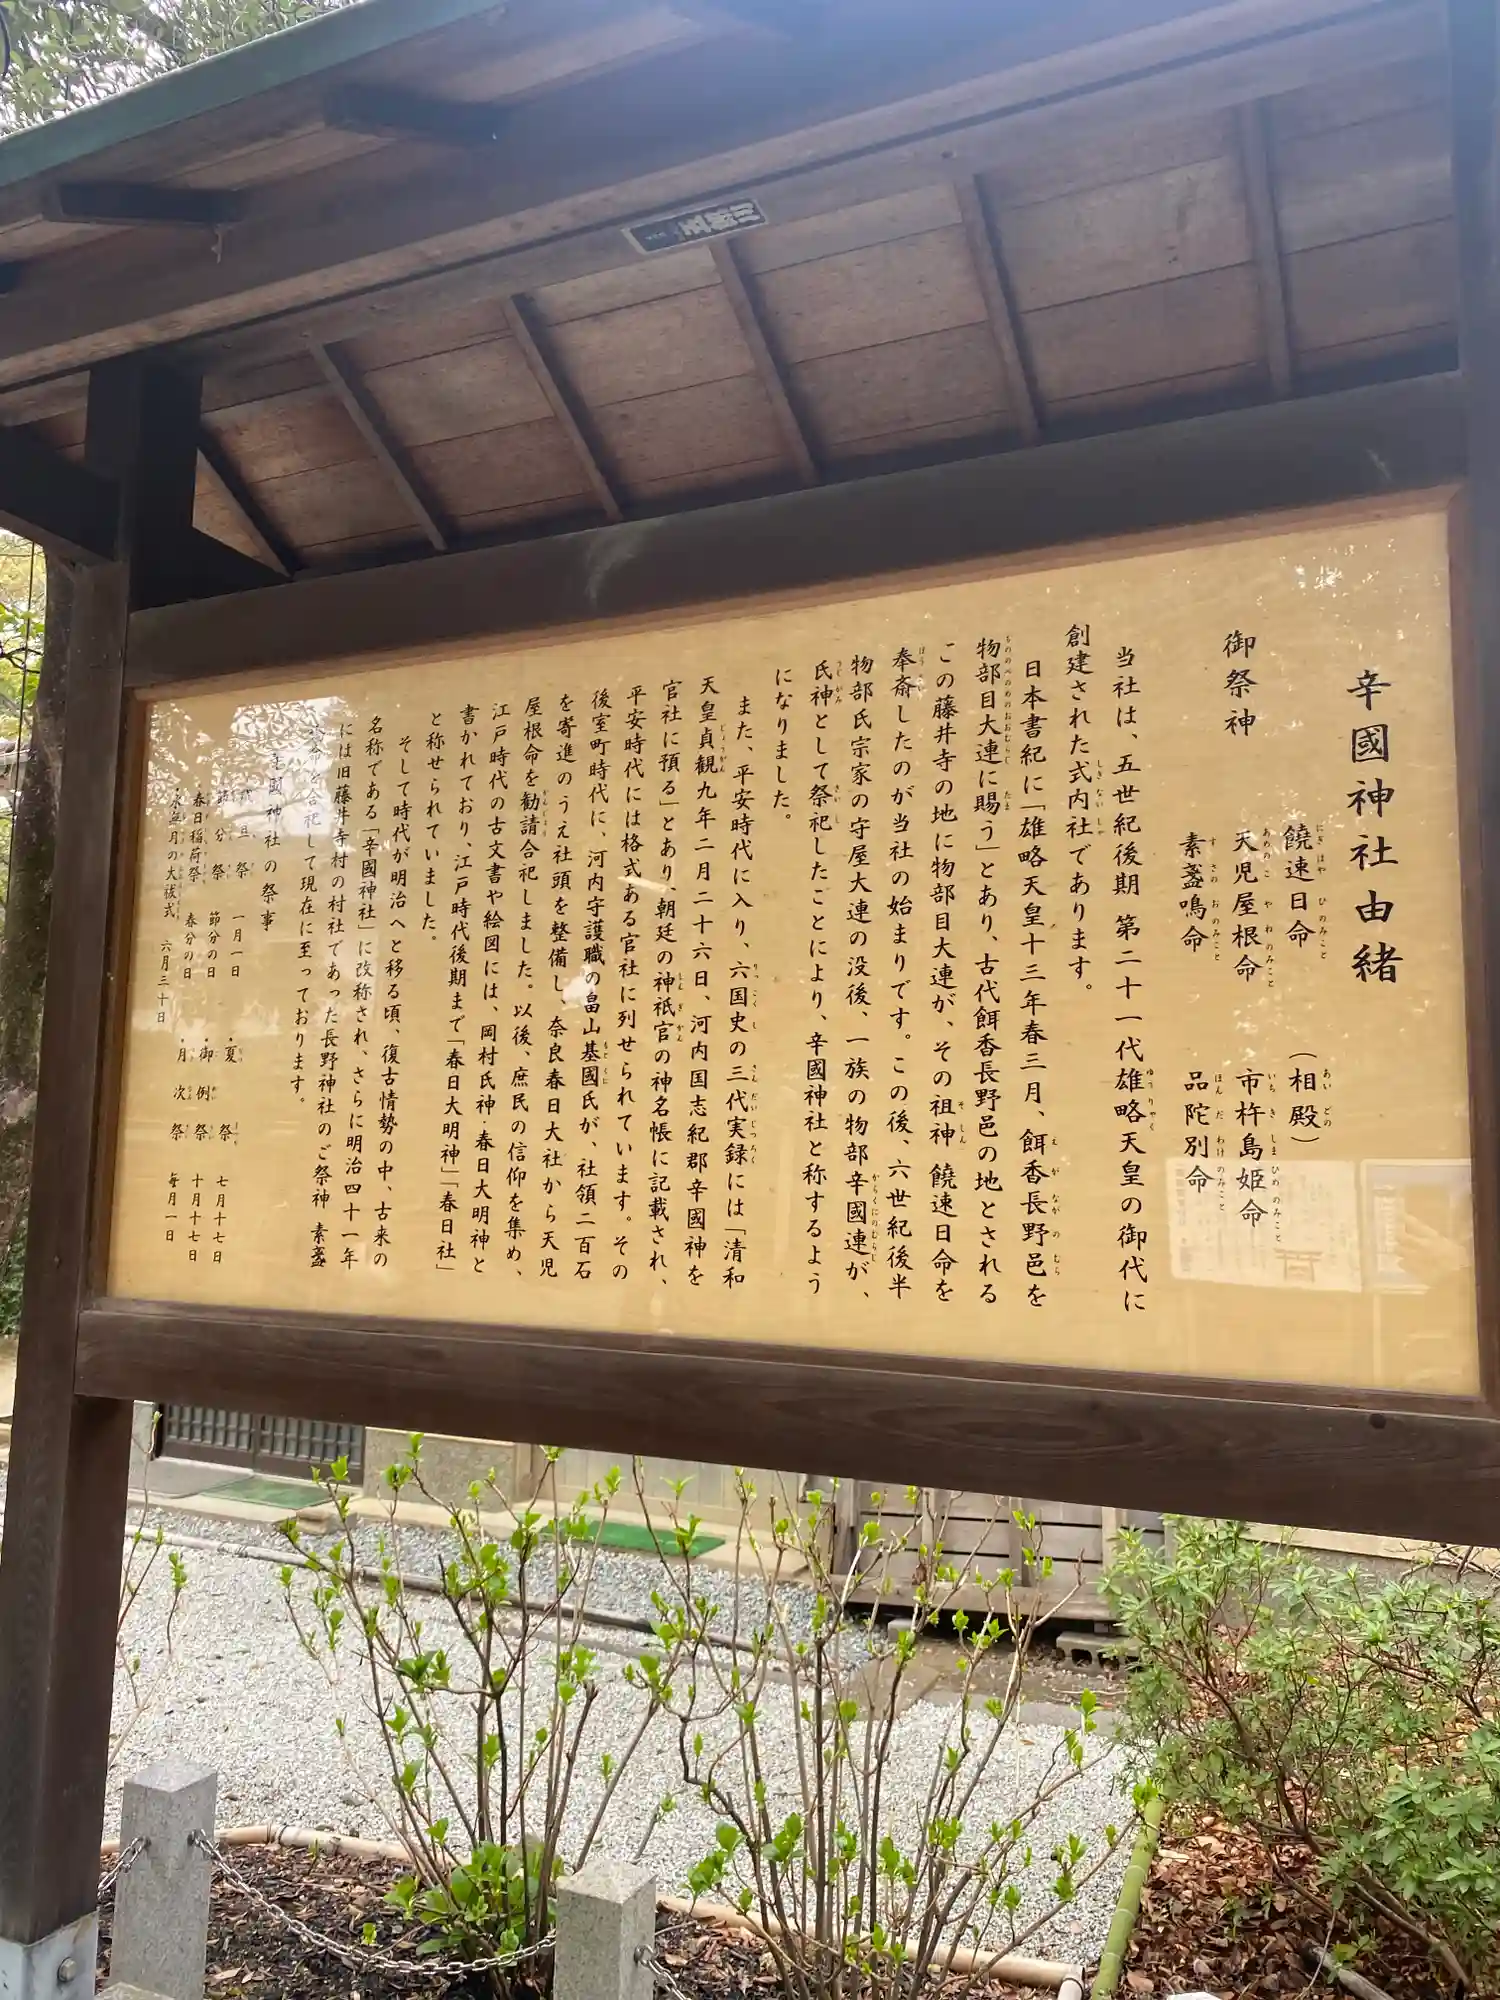 辛國神社由緒
御祭神
饒速日命
天児屋根命
素盞鳴命
（相殿）
市杵島姫命
品陀別命
当社は、五世紀後期 第二十一代雄略天皇の御代に
創建された式内社であります。
日本書紀に「雄略天皇十三年春三月、餌香長野邑を
物部目大連に賜う」とあり、古代餌香長野邑の地とされる
この藤井寺の地に物部目大連が、その祖神 饒速日命を
奉斎したのが当社の始まりです。この後、六世紀後半
物部氏宗家の守屋大連の没後、一族の物部辛國連が、
氏神として祭祀したことにより、辛國神社と称するよう
になりました。
また、平安時代に入り、六国史の三代実録には「清和
天皇貞観九年二月二十六日、河内国志紀郡辛國神を
官社に預る」とあり、朝廷の神祇官の神名帳に記載され、
平安時代には格式ある官社に列せられています。その
後室町時代に、河内守護職の畠山基國氏が、社領二百石
を寄進のうえ社頭を整備し、奈良春日大社から天児
屋根命を勧請合祀しました。以後、庶民の信仰を集め、
江戸時代の古文書や絵図には、岡村氏神・春日大明神と
書かれており、江戸時代後期まで「春日大明神」「春日社」
と称せられていました。
そして時代が明治へと移る頃、復古情勢の中、古来の
名称である「辛國神社」に改称され、さらに明治四十一年
には旧藤井寺村の村社であった長野神社のご祭神 素盞
命を合祀して現在に至っております。
國神社の祭事
旦祭 一月一日
節分祭 節分の日
春日稲荷祭 春分の日
水無月の大祓式 六月三十日
・夏祭 七月十七日
・御例祭 十月十七日
・月次祭 毎月一日